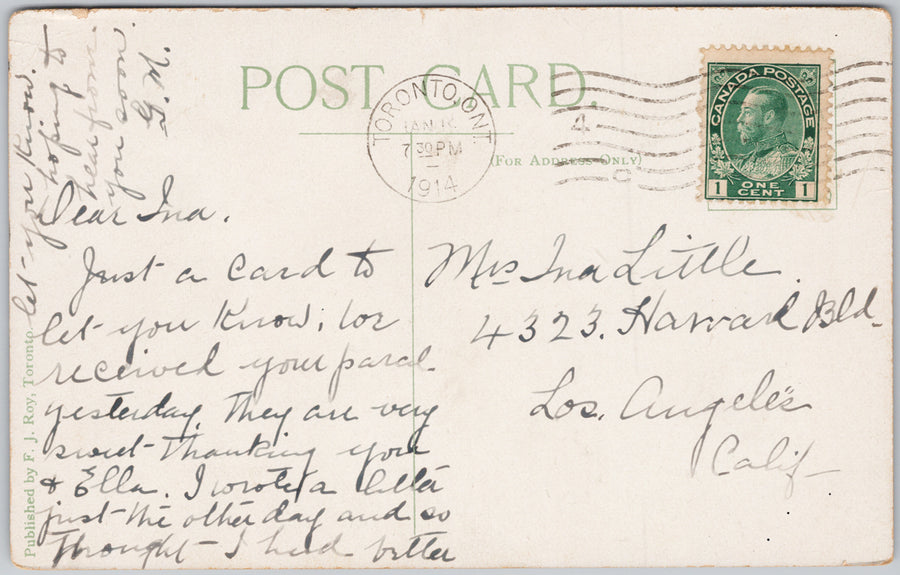 POST CARD.
(FOR ADDRESS ONLY)
TORONTO, ONT.
JAN
7 30 PM
1914
4
CANADA POSTAGE
1 ONE CENT 1
Dear Ina.
Just a card to
let you Know, we
received your parcel.
yesterday, they are very
sweet thanking you
& Ella. I wrote a letter
just the other day and so
thought I had better
let you Know.
hoping to
hear from
you soon.
G. M.
Mrs Ina Little
4323. Harvard Bld.
Los. Angeles
Calif
Published by F. J. Roy, Toronto.